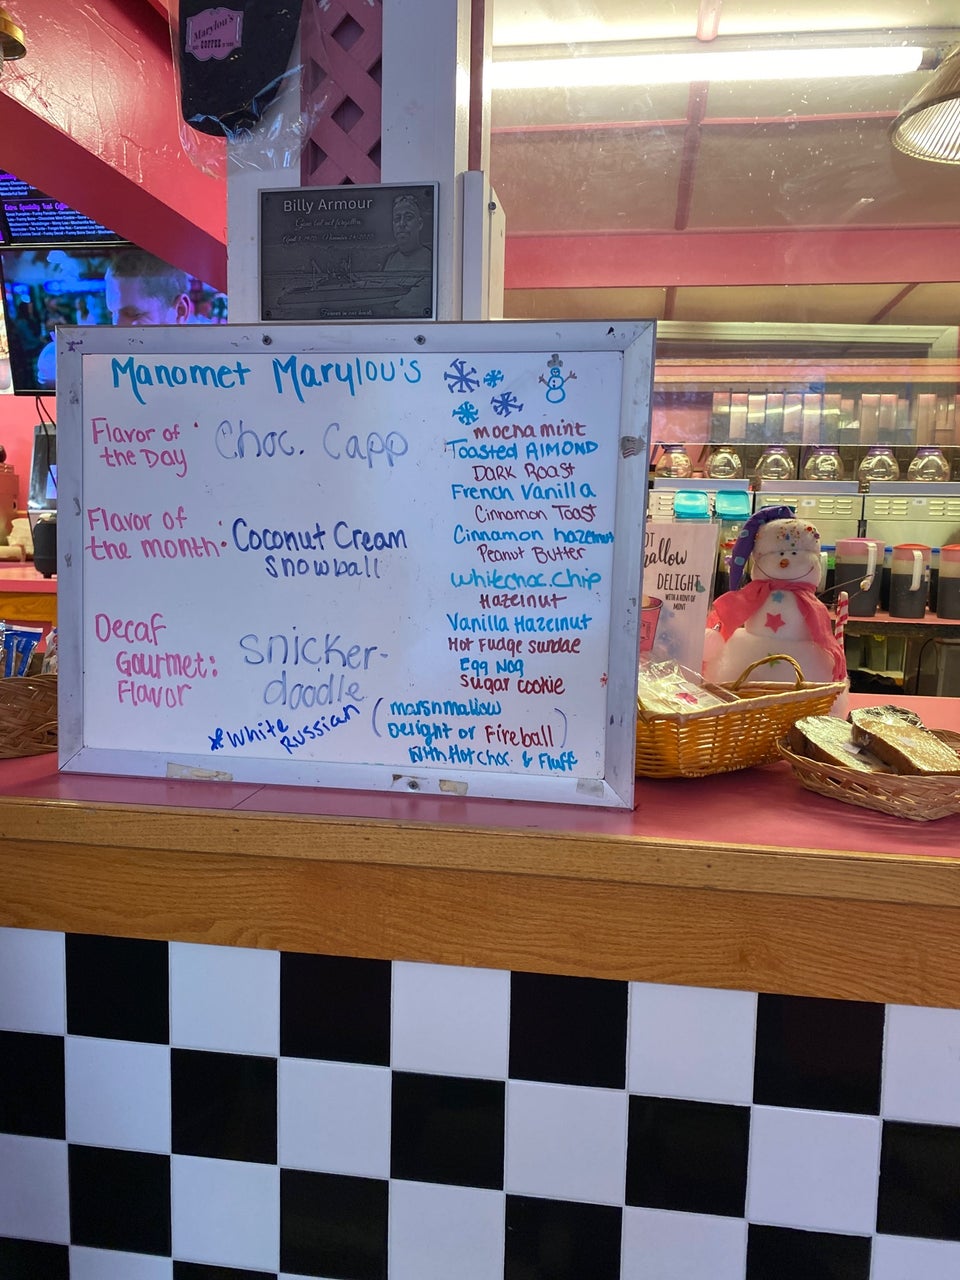 Marylou's
COFFEE
Extra Specialty Iced Coffee
Billy Armour
Gone but not forgotten
Forever in our hearts
Manomet Marylou's
Flavor of
the Day
Choc. Capp
Flavor of
the month:
Coconut Cream
Snowball
Decaf
Gourmet:
Flavor
Snicker-
doodle
*White
Russian
mocha mint
Toasted Almond
DARK Roast
French Vanilla
Cinnamon Toast
Cinnamon hazelnut
Peanut Butter
whitechoc.chip
Hazelnut
Vanilla Hazelnut
Hot Fudge Sundae
Egg Nog
Sugar cookie
(marshmallow
Delight or Fireball)
with Hot choc. & Fluff
allow
DELIGHT
WITH A HINT OF
MINT